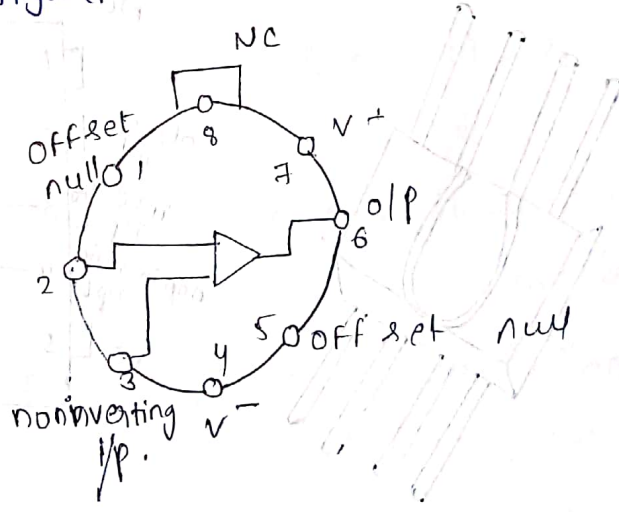 NC
8
offset
null 1
V +
7
o/p
6
2
5 offset null
4
3
V -
noninverting
i/p.